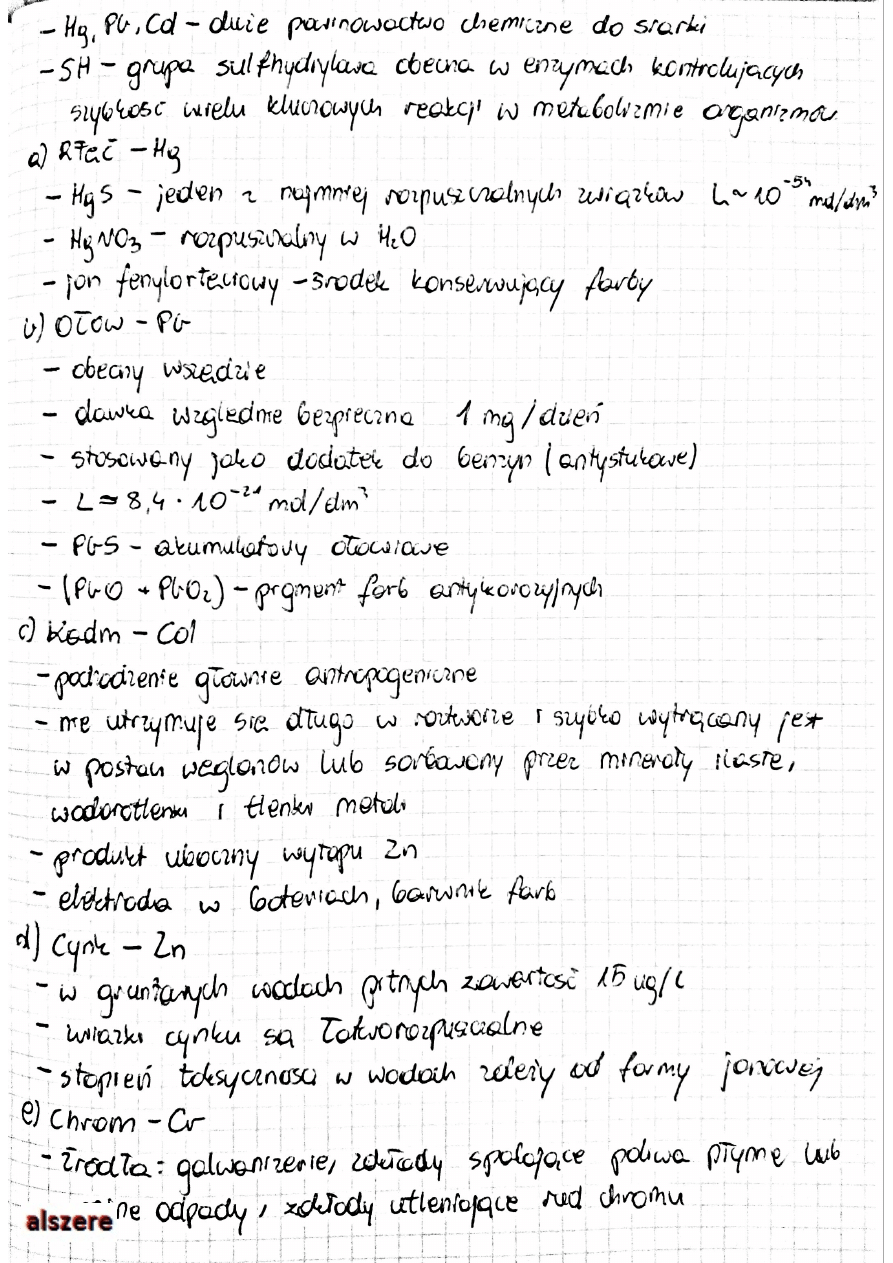 - Hg, Pb, Cd - duże powinowactwo chemiczne do siarki
- SH - grupa sulfhydrylowa obecna w enzymach kontrolujących
szybkość wielu kluczowych reakcji w metabolizmie organizmów
a) Rtęć - Hg
- HgS - jeden z najmniej rozpuszczalnych związków L~10⁻⁵⁴ mol/dm³
- HgNO₃ - rozpuszczalny w H₂O
- jon fenylortęciowy - środek konserwujący farby
b) Ołów - Pb
- obecny wszędzie
- dawka względnie bezpieczna 1 mg/dzień
- stosowany jako dodatek do benzyn (antystukowe)
- L ≃ 8,4 · 10⁻²¹ mol/dm³
- PbS - akumulatory ołowiowe
- (PbO + PbO₂) - pigment farb antykorozyjnych
c) Kadm - Cd
- pochodzenie głównie antropogeniczne
- nie utrzymuje się długo w roztworze i szybko wytrącany jest
w postaci węglanów lub sorbowany przez minerały ilaste,
wodorotlenki i tlenki metali
- produkt uboczny wytopu Zn
- elektroda w bateriach, barwnik farb
d) Cynk - Zn
- w wodach pitnych zawartość 15 ug/l
- związki cynku są łatworozpuszczalne
- stopień toksyczności w wodach zależy od formy jonowej
e) Chrom - Cr
- źródła: galwanizernie, zakłady spalające paliwa płynne lub
odpady, zakłady utleniające rud chromu
alszere